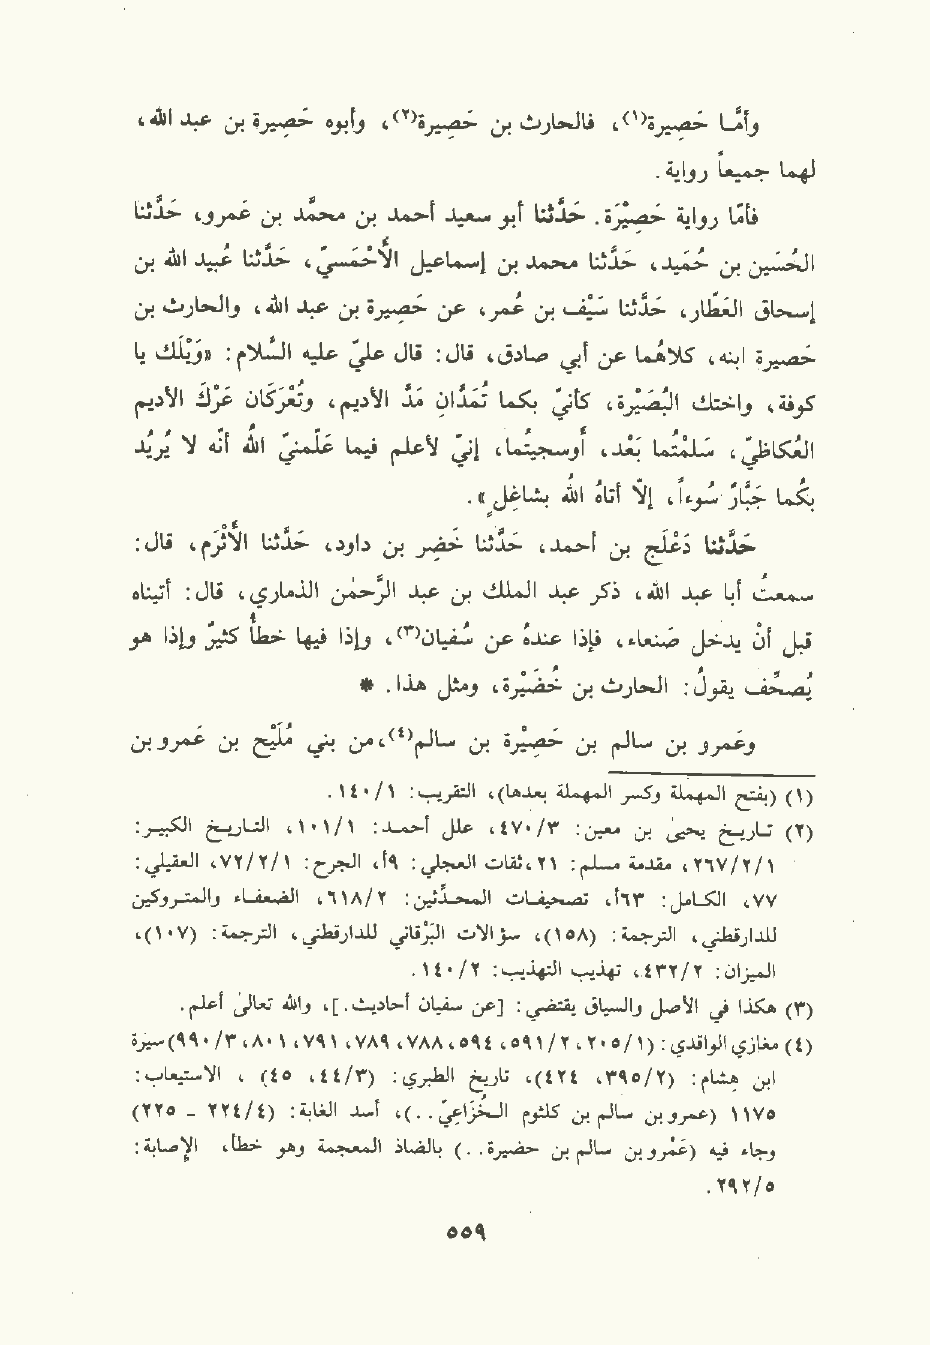 وأمَّا حَصِيرة(١)، فالحارث بن حَصِيرة(٢)، وأبوه حَصِيرة بن عبد الله،
لهما جميعاً رواية.
فأمّا رواية حَصِيْرَة. حَدَّثنا أبو سعيد أحمد بن محمَّد بن عَمرو، حَدَّثنا
الحُسَين بن حُمَيد، حَدَّثنا محمد بن إسماعيل الأَحْمَسيّ، حَدَّثنا عُبيد الله بن
إسحاق العَطّار، حَدَّثنا سَيْف بن عُمر، عن حَصِيرة بن عبد الله، والحارث بن
حصيرة ابنه، كلاهُما عن أبي صادق، قال: قال عليّ عليه السَّلام: «وَيْلَك يا
كوفة، واختك البُصَيْرة، كأنيّ بكما تُمَدّانِ مَدَّ الأديم، وتُعْرَكان عَرْكَ الأديم
العُكاظيّ، سَلمْتُما بَعْدُ، أوسجيتُما، إنيّ لأعلم فيما عَلَّمنيّ اللهُ أنّه لا يُريُد
بكُما جَبَّارٌ سُوءاً، إلّا أتاهُ اللهُ بشاغِلٍ».
حَدَّثنا دَعْلَج بن أحمد، حَدَّثنا خَضِر بن داود، حَدَّثنا الأَثْرَم، قال:
سمعتُ أبا عبد الله، ذكر عبد الملك بن عبد الرَّحمٰن الذماري، قال: أتيناه
قبل أنْ يدخل صَنعاء، فإذا عندهُ عن سُفيان(٣)، وإذا فيها خطأٌ كثيرٌ وإذا هو
يُصحِّف يقولُ: الحارث بن خُضَيْرة، ومثل هذا. *
وعَمرو بن سالم بن حَصِيْرة بن سالم(٤)،من بني مُلَيْح بن عَمرو بن
(١) (بفتح المهملة وكسر المهملة بعدها)، التقريب: ١٤٠/١.
(٢) تاريخ يحيىٰ بن معين: ٤٧٠/٣، علل أحمد: ١٠١/١، التاريخ الكبير:
٢٦٧/٢/١، مقدمة مسلم: ٢١،ثقات العجلي: ٩أ، الجرح: ٧٢/٢/١، العقيلي:
٧٧، الكامل: ٦٣أ، تصحيفات المحدّثين: ٦١٨/٢، الضعفاء والمتروكين
للدارقطني، الترجمة: (١٥٨)، سؤالات البُرْقاني للدارقطني، الترجمة: (١٠٧)،
الميزان: ٤٣٢/٢، تهذيب التهذيب: ١٤٠/٢.
(٣) هكذا في الأصل والسياق يقتضي: [عن سفيان أحاديث.]، والله تعالىٰ أعلم.
(٤) مغازي الواقدي: (٢٠٥/١، ٥٩١/٢، ٥٩٤، ٧٨٨، ٧٨٩، ٧٩١، ٨٠١، ٩٩٠/٣)سيرة
ابن هِشام: (٣٩٥/٢، ٤٢٤)، تاريخ الطبري: (٤٤/٣، ٤٥) ، الاستيعاب:
١١٧٥ (عمروبن سالم بن كلثوم الخُزاعيّ..)، أسد الغابة: (٢٢٤/٤ - ٢٢٥)
وجاء فيه (عَمْروبن سالم بن حضيرة..) بالضاد المعجمة وهو خطأ، الإصابة:
٢٩٢/٥.
٥٥٩